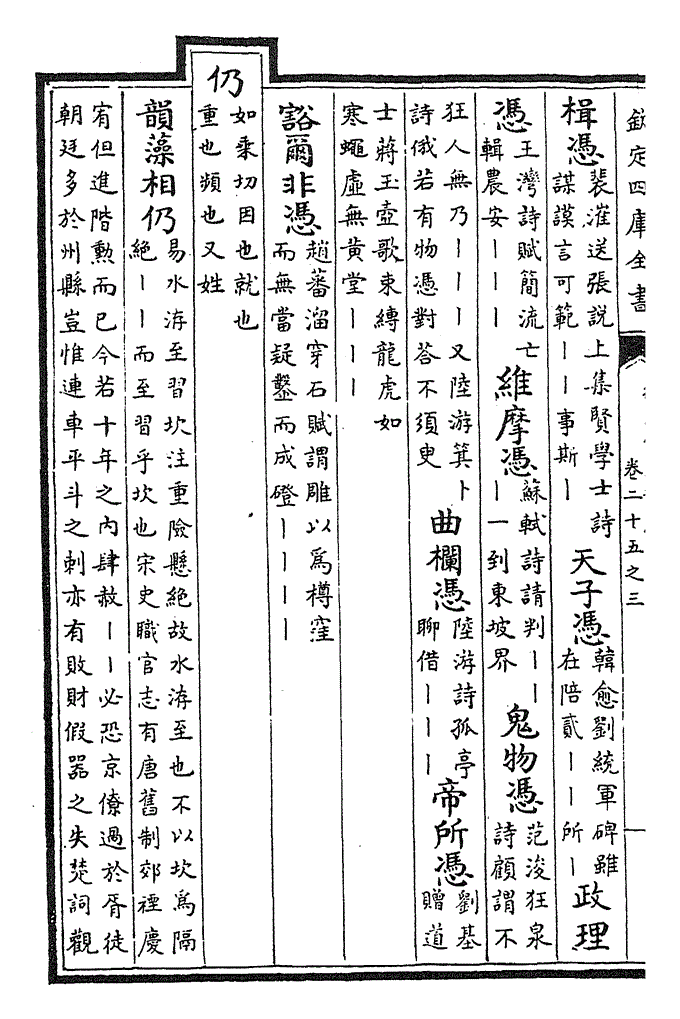 欽定四庫全書
卷二十五之三
一
楫憑
裴漼送張説上集賢學士詩
謀謨言可範丨丨事斯丨
天子憑
韓愈劉統軍碑雖
在陪貳丨丨所丨
政理
憑
王灣詩賦簡流亡
輯農安丨丨丨
維摩憑
蘇軾詩請判丨丨
丨一到東坡界
鬼物憑
范浚狂泉
詩顧謂不
狂人無乃丨丨丨又陸游箕卜
詩俄若有物憑對荅不須臾
曲欄憑
陸游詩孤亭
聊借丨丨丨
帝所憑
劉基
贈道
士蔣玉壺歌束縛龍虎如
寒蠅虛無黄堂丨丨丨
豁爾非憑
趙蕃溜穿石賦謂雕以爲樽窪
而無當疑鑿而成磴丨丨丨丨
仍
如乘切因也就也
重也頻也又姓
韻藻相仍
易水洊至習坎注重險懸絶故水洊至也不以坎爲隔
絶丨丨而至習乎坎也宋史職官志有唐舊制郊禋慶
宥但進階勲而已今若十年之内肆赦丨丨必恐京僚過於胥徒
朝廷多於州縣豈惟連車平斗之刺亦有敗財假器之失楚詞觀